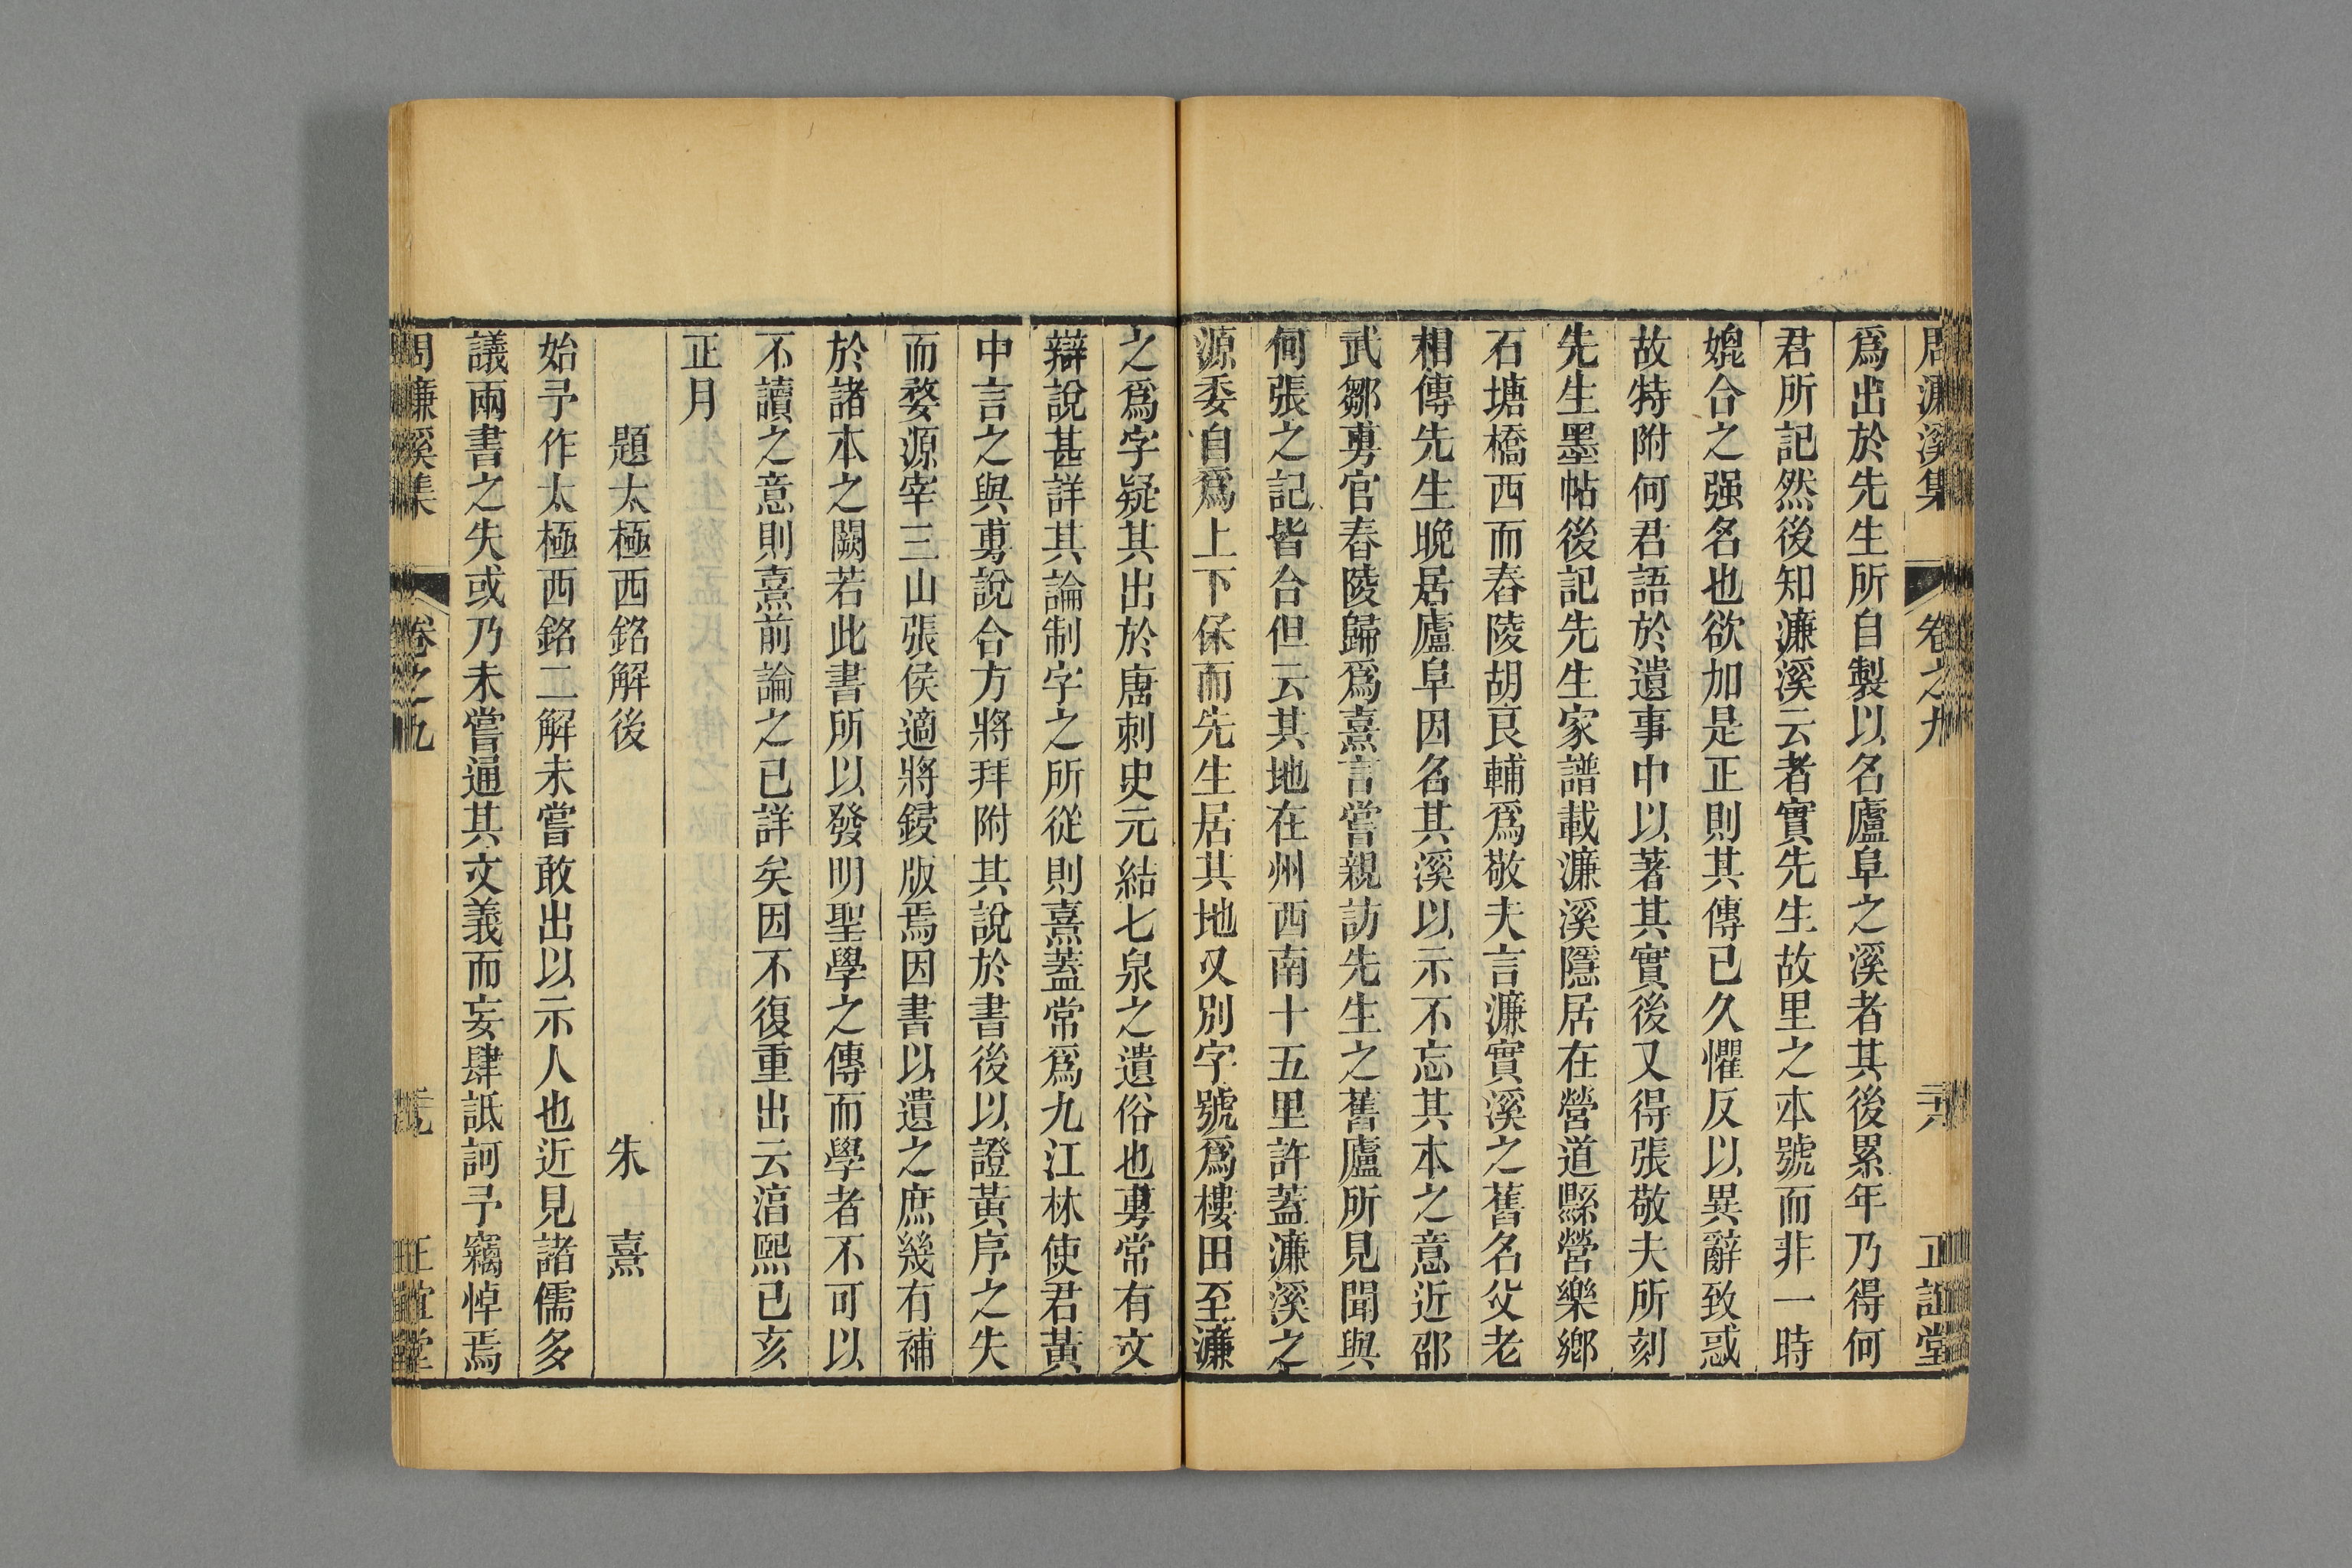 周濂溪集 卷之九 正誼堂
爲出於先生所自製以名廬阜之溪者其後累年乃得何
君所記然後知濂溪云者實先生故里之本號而非一時
媲合之强名也欲加是正則其傳已久懼反以異辭致惑
故特附何君語於遺事中以著其實後又得張敬夫所刻
先生墨帖後記先生家譜載濂溪隱居在營道縣營樂鄉
石塘橋西而舂陵胡良輔爲敬夫言濂實溪之舊名父老
相傳先生晩居廬阜因名其溪以示不忘其本之意近邵
武鄒旉官舂陵歸爲熹言嘗親訪先生之舊廬所見聞與
何張之記皆合但云其地在州西南十五里許蓋濂溪之
源委自爲上下保而先生居其地又別字號爲樓田至濂
之爲字疑其出於唐刺史元結七泉之遺俗也旉常有文
辯說甚詳其論制字之所從則熹蓋常爲九江林使君黃
中言之與旉說合方將拜附其說於書後以證黃序之失
而婺源宰三山張侯適將鋟版焉因書以遺之庶幾有補
於諸本之闕若此書所以發明聖學之傳而學者不可以
不讀之意則熹前論之已詳矣因不復重出云淳熙已亥
正月
題太極西銘解後 朱熹
始予作太極西銘二解未嘗敢出以示人也近見諸儒多
議兩書之失或乃未嘗通其文義而妄肆詆訶予竊悼焉
周濂溪集 卷之九 正誼堂